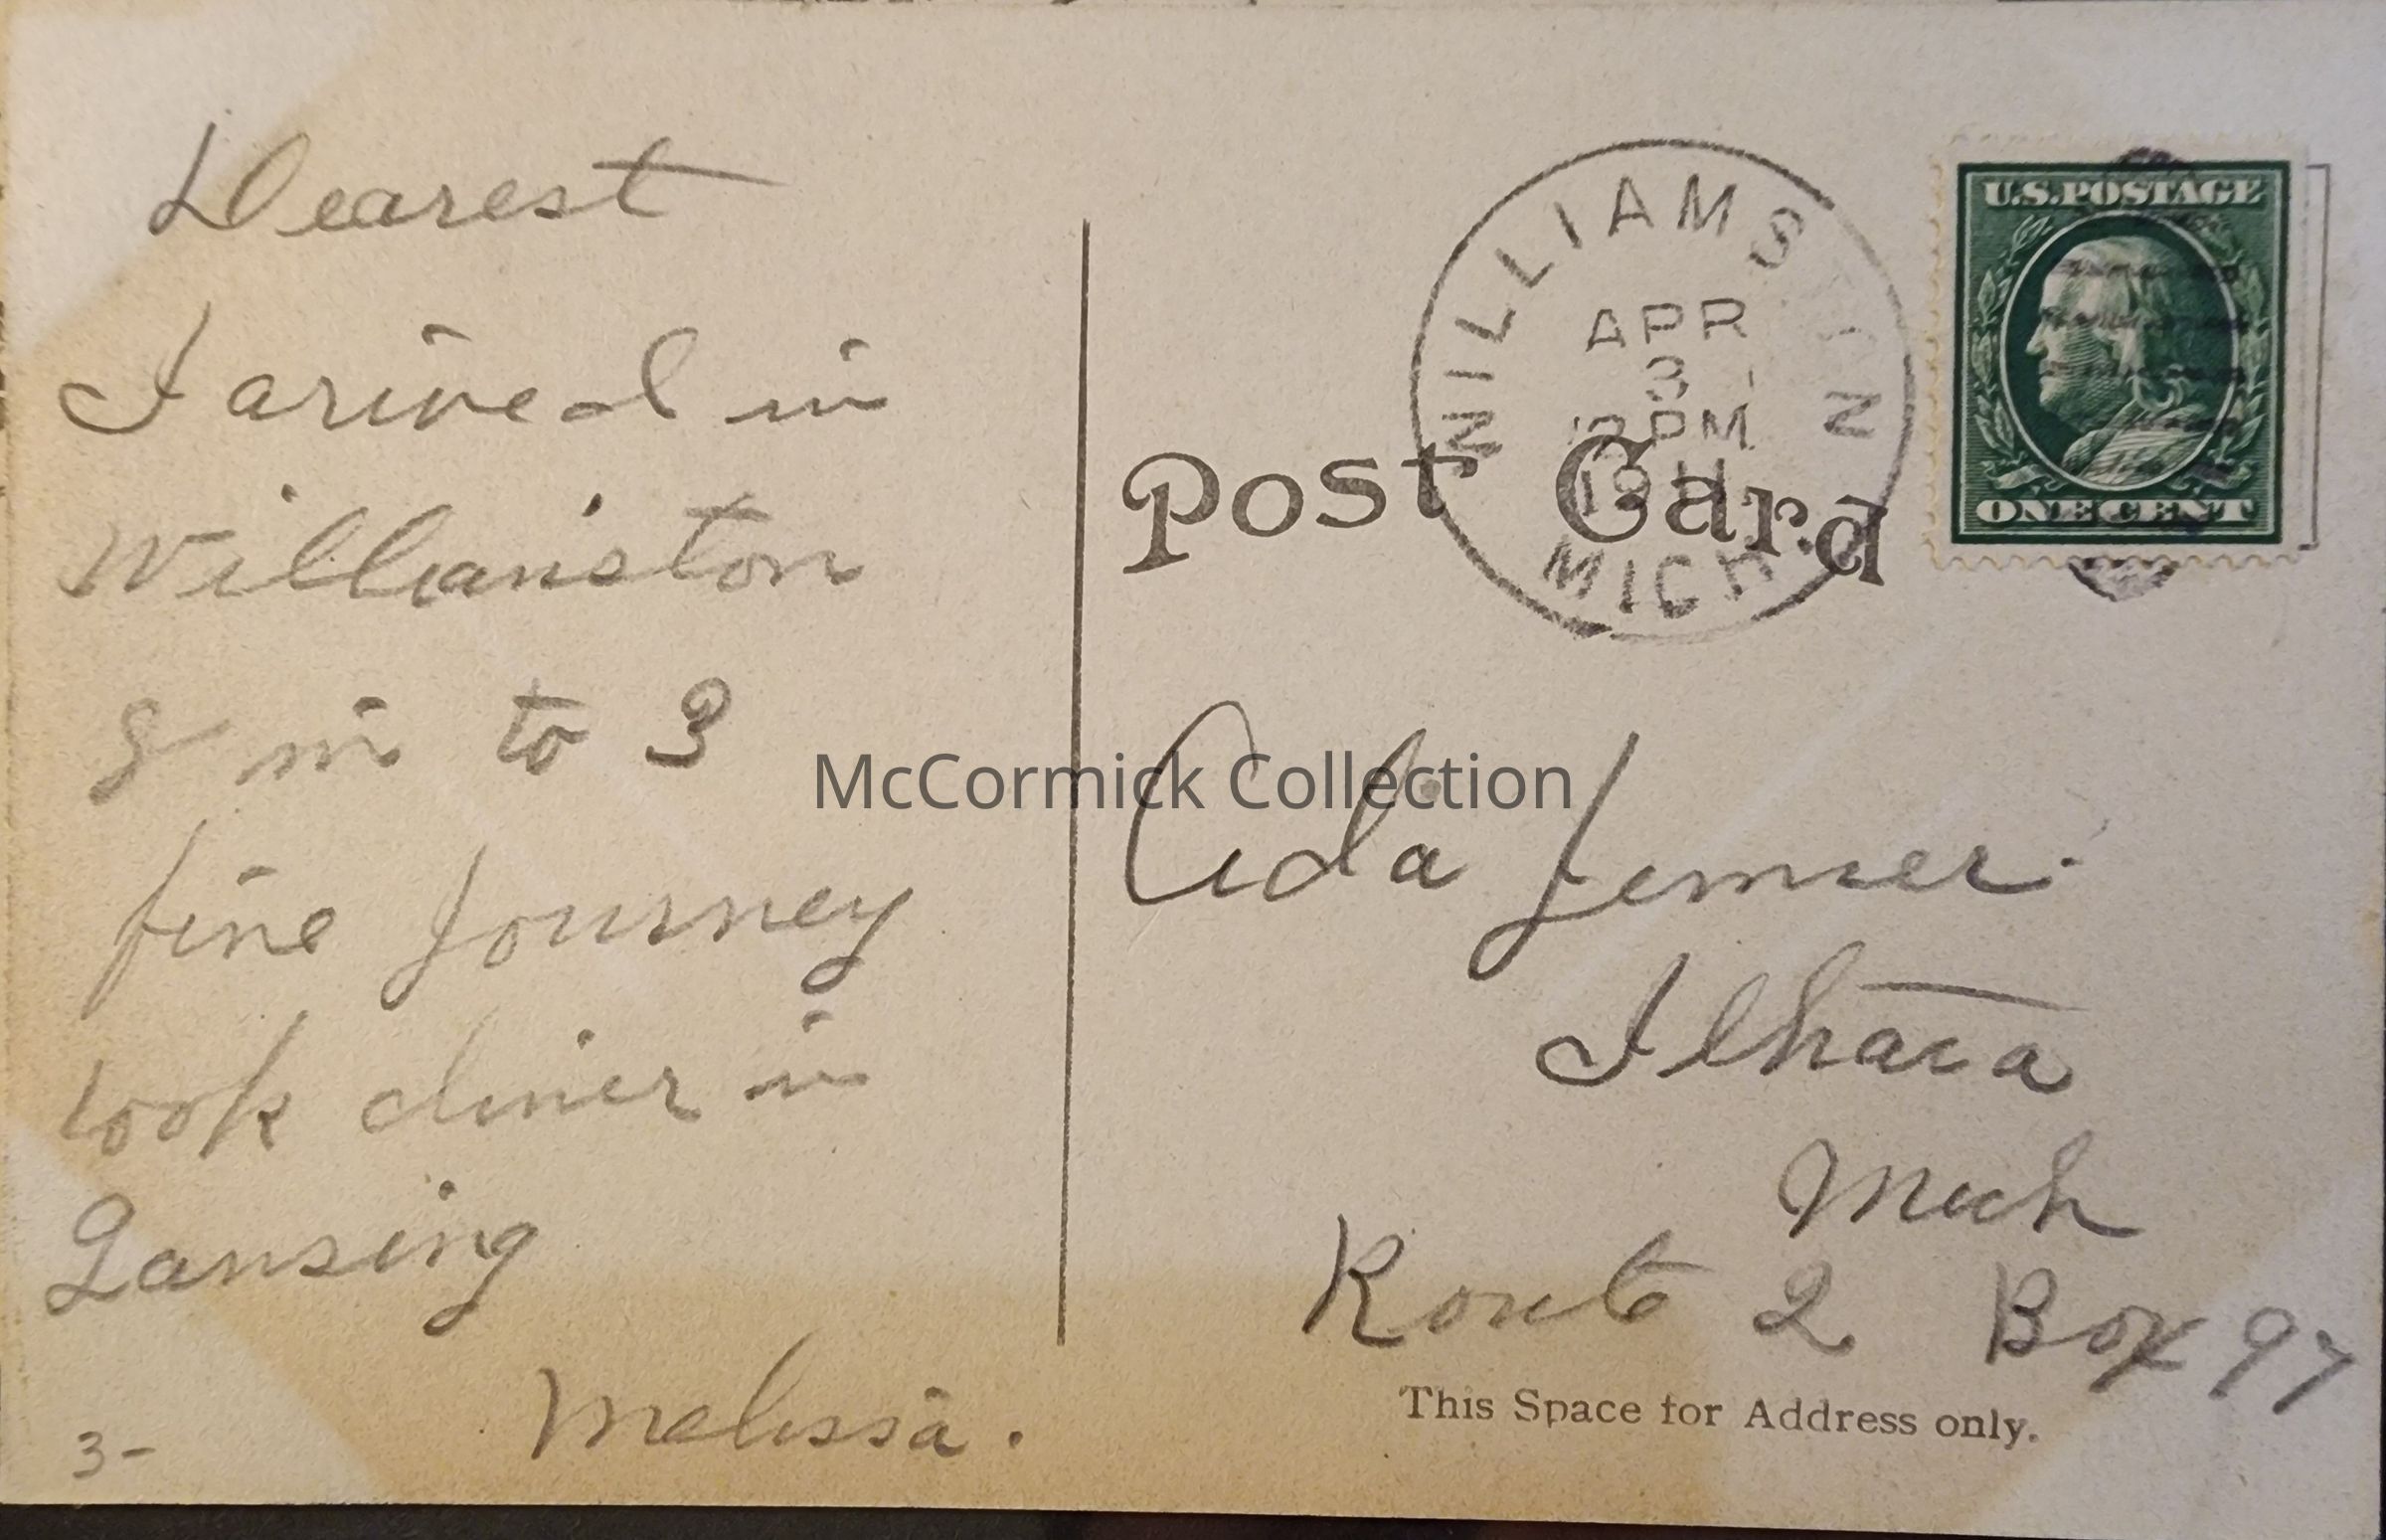 Dearest
I arived in
Williamston
8 m to 3
fine Journey
took diner in
Lansing
Melissa.
3-
WILLIAMSTON
APR
3
PM
1911
MICH.
U.S.POSTAGE
ONE CENT
Post Card
McCormick Collection
Ada
Ithaca
Mich
Route 2 Box 97
This Space for Address only.